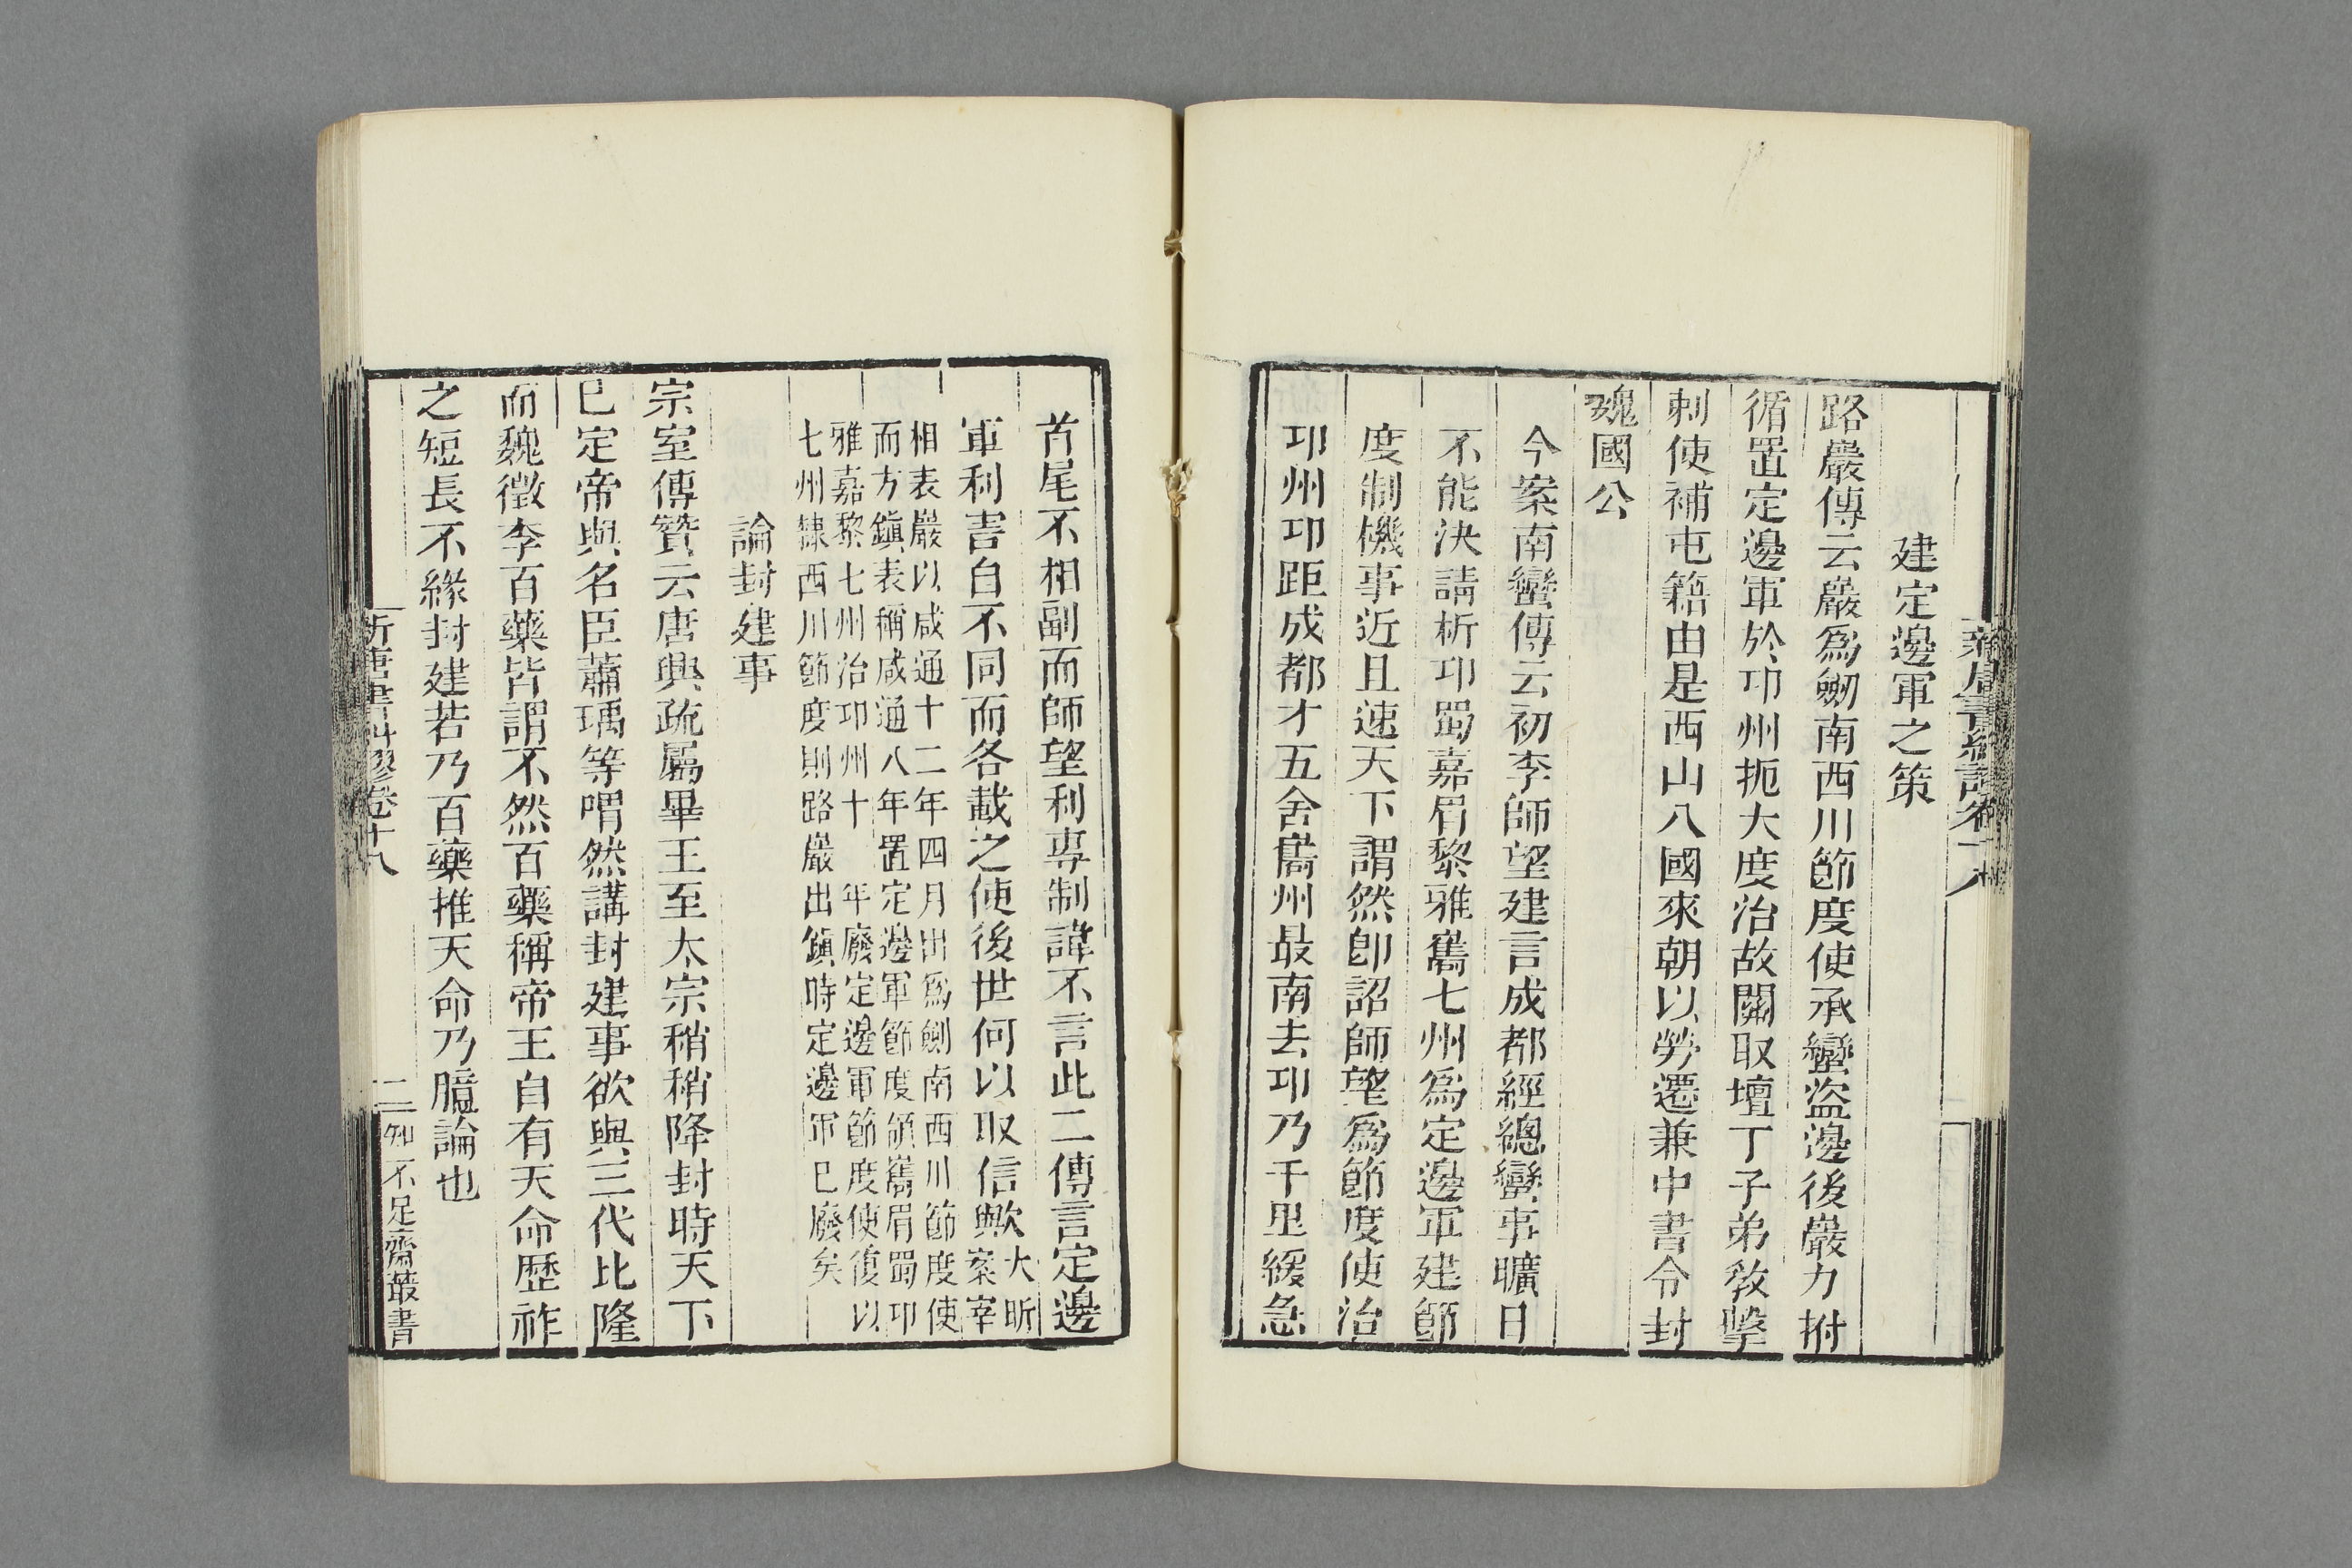 建定邊軍之策
路巖傳云巖爲劒南西川節度使承蠻盜邊後巖力拊
循置定邊軍於邛州扼大度治故關取壇丁子弟教擊
刺使補屯籍由是西山八國來朝以勞遷兼中書令封
魏國公
今案南蠻傳云初李師望建言成都經總蠻事曠日
不能決請析邛蜀嘉眉黎雅巂七州爲定邊軍建節
度制機事近且速天下謂然卽詔師望爲節度使治
邛州邛距成都才五舍巂州最南去邛乃千里緩急
首尾不相副而師望利專制諱不言此二傳言定邊
軍利害自不同而各載之使後世何以取信歟大昕
案宰
相表巖以咸通十二年四月出爲劒南西川節度使
而方鎮表稱咸通八年置定邊軍節度領巂眉蜀邛
雅嘉黎七州治邛州十 年廢定邊軍節度使復以
七州隸西川節度則路巖出鎮時定邊軍已廢矣
論封建事
宗室傳贊云唐興疏屬畢王至太宗稍稍降封時天下
已定帝與名臣蕭瑀等喟然講封建事欲與三代比隆
而魏徵李百藥皆謂不然百藥稱帝王自有天命歷祚
之短長不緣封建若乃百藥推天命乃臆論也
新唐書糾謬卷十八
二
知不足齋叢書